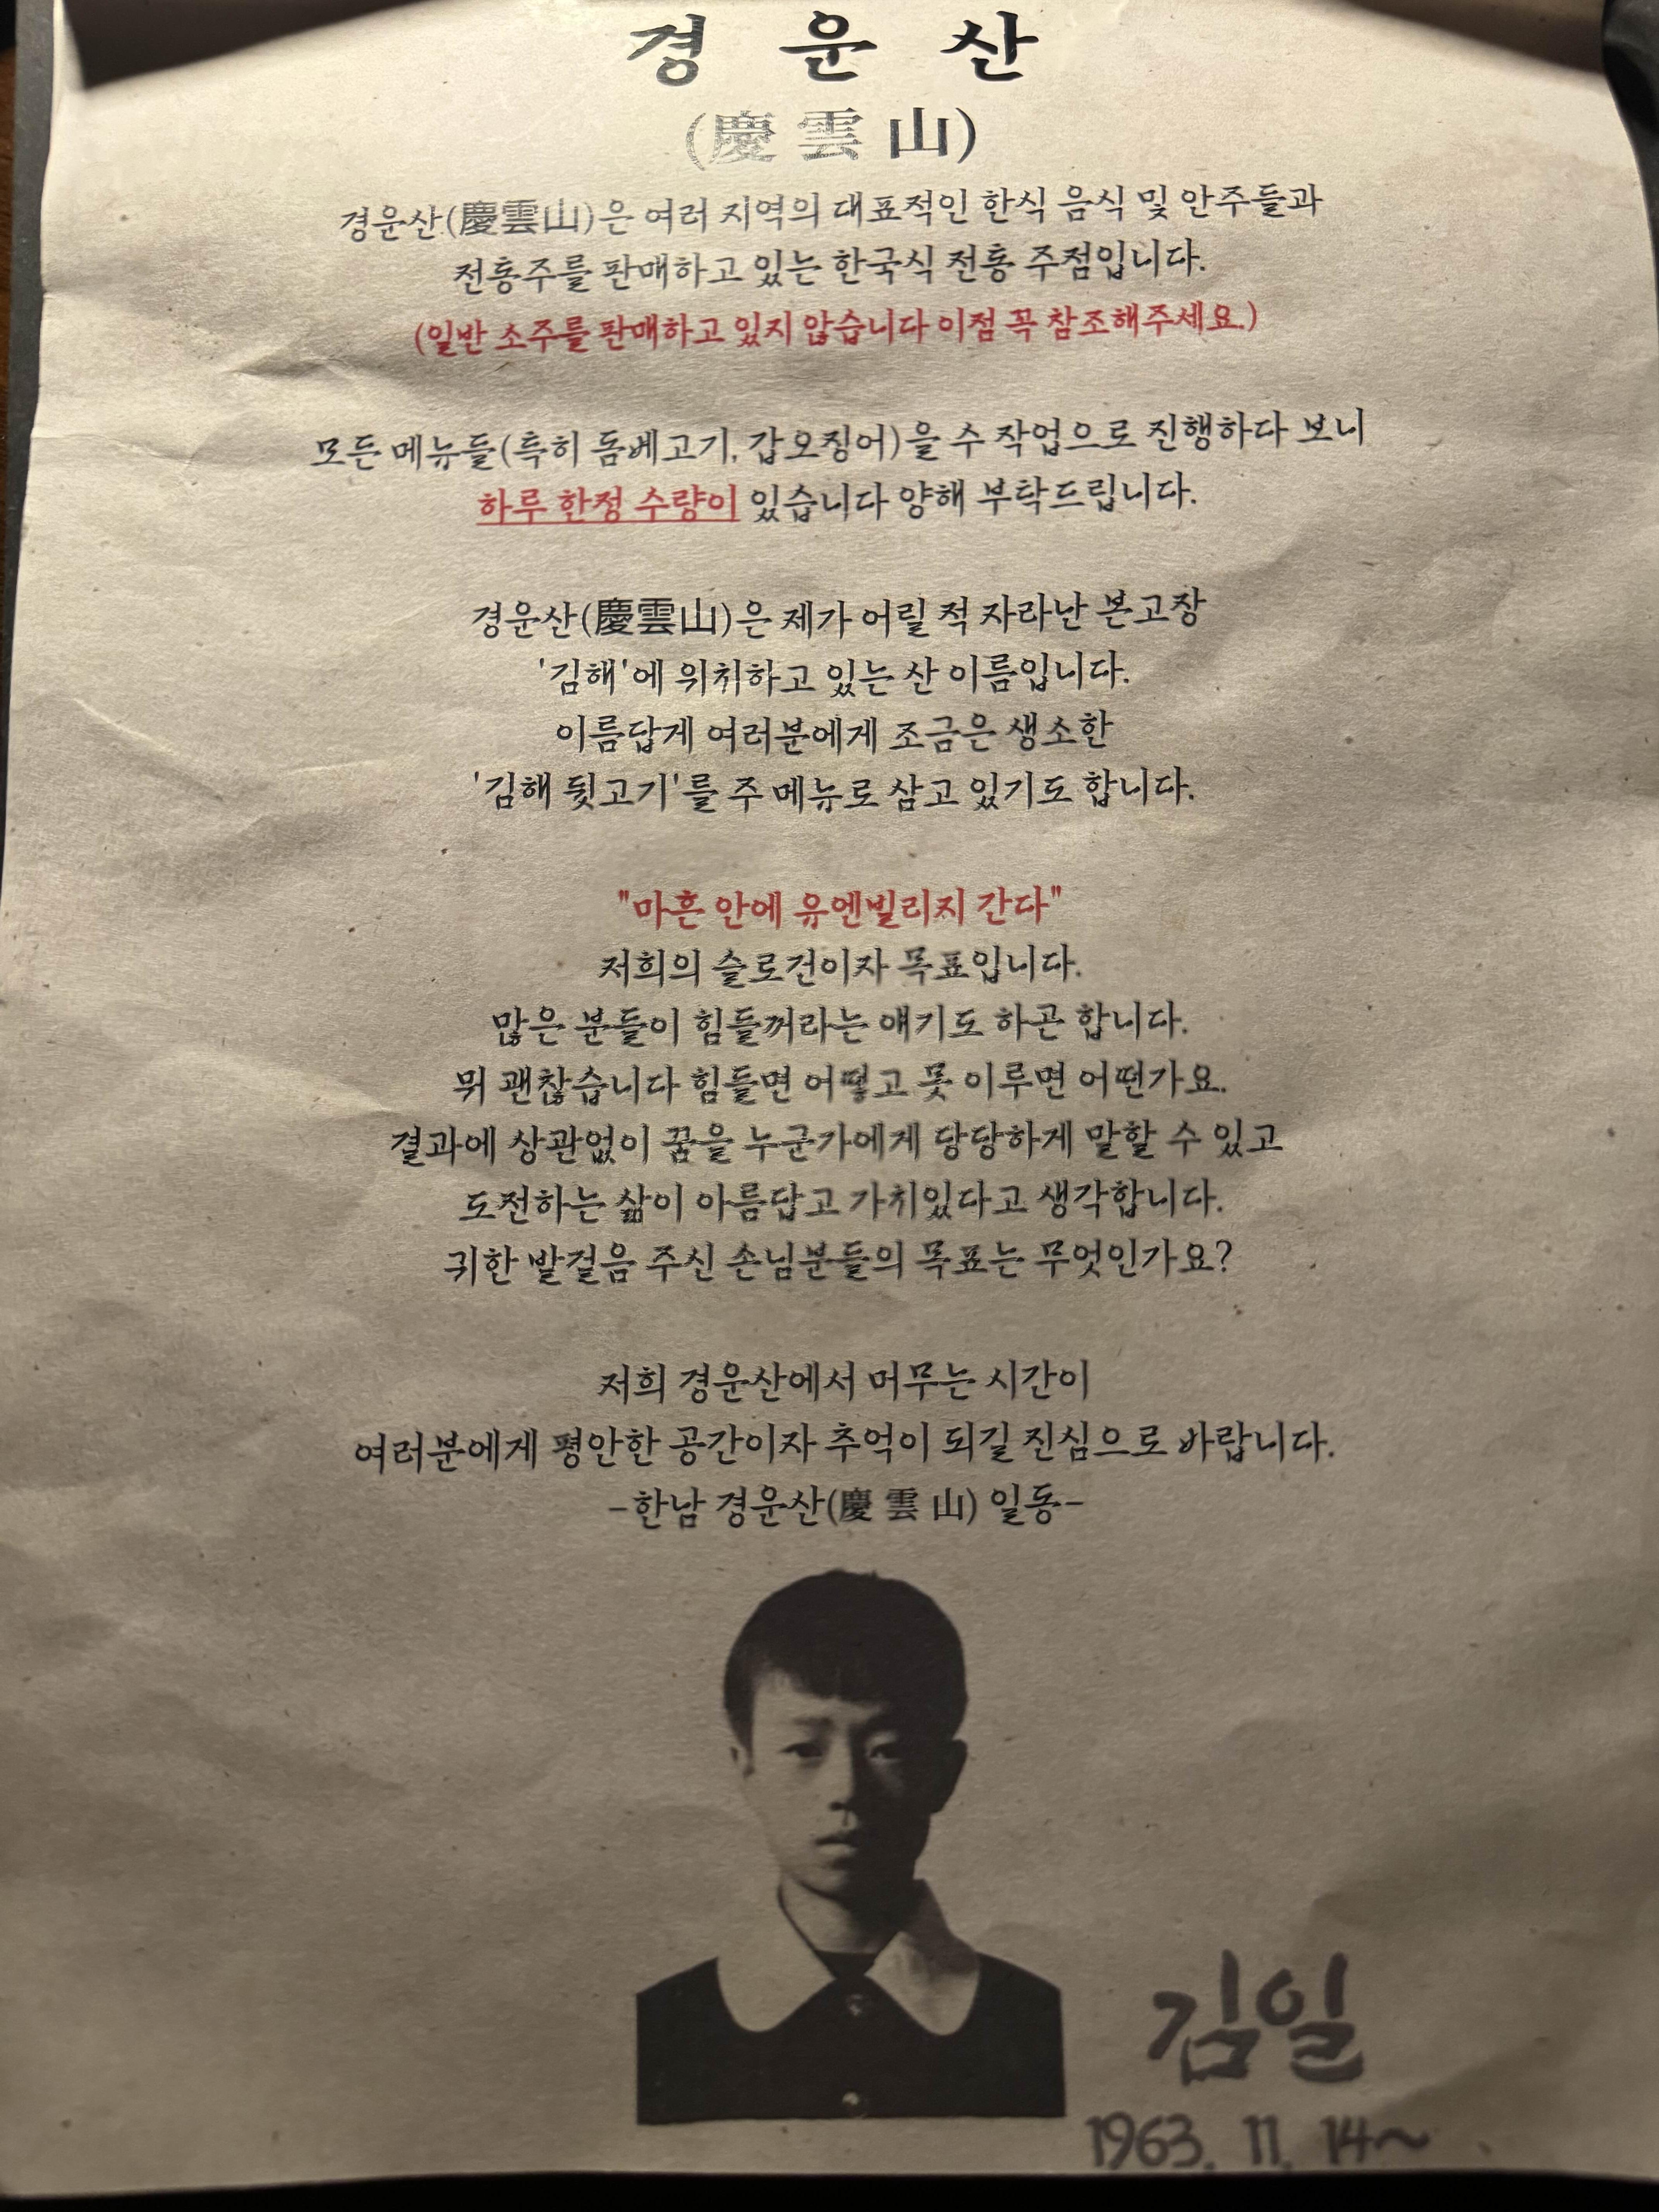 경 운 산
(慶 雲 山)
경운산(慶雲山)은 여러 지역의 대표적인 한식 음식 및 안주들과
전통주를 판매하고 있는 한국식 전통 주점입니다.
(일반 소주를 판매하고 있지 않습니다 이점 꼭 참조해주세요.)
모든 메뉴들(특히 돔베고기, 갑오징어)을 수 작업으로 진행하다 보니
하루 한정 수량이 있습니다 양해 부탁드립니다.
경운산(慶雲山)은 제가 어릴 적 자라난 본고장
'김해'에 위치하고 있는 산 이름입니다.
이름답게 여러분에게 조금은 생소한
'김해 뒷고기'를 주 메뉴로 삼고 있기도 합니다.
"마흔 안에 유엔빌리지 간다"
저희의 슬로건이자 목표입니다.
많은 분들이 힘들꺼라는 얘기도 하곤 합니다.
뭐 괜찮습니다 힘들면 어떻고 못 이루면 어떤가요.
결과에 상관없이 꿈을 누군가에게 당당하게 말할 수 있고
도전하는 삶이 아름답고 가치있다고 생각합니다.
귀한 발걸음 주신 손님분들의 목표는 무엇인가요?
저희 경운산에서 머무는 시간이
여러분에게 평안한 공간이자 추억이 되길 진심으로 바랍니다.
-한남 경운산(慶 雲 山) 일동-
김일
1963. 11. 14~